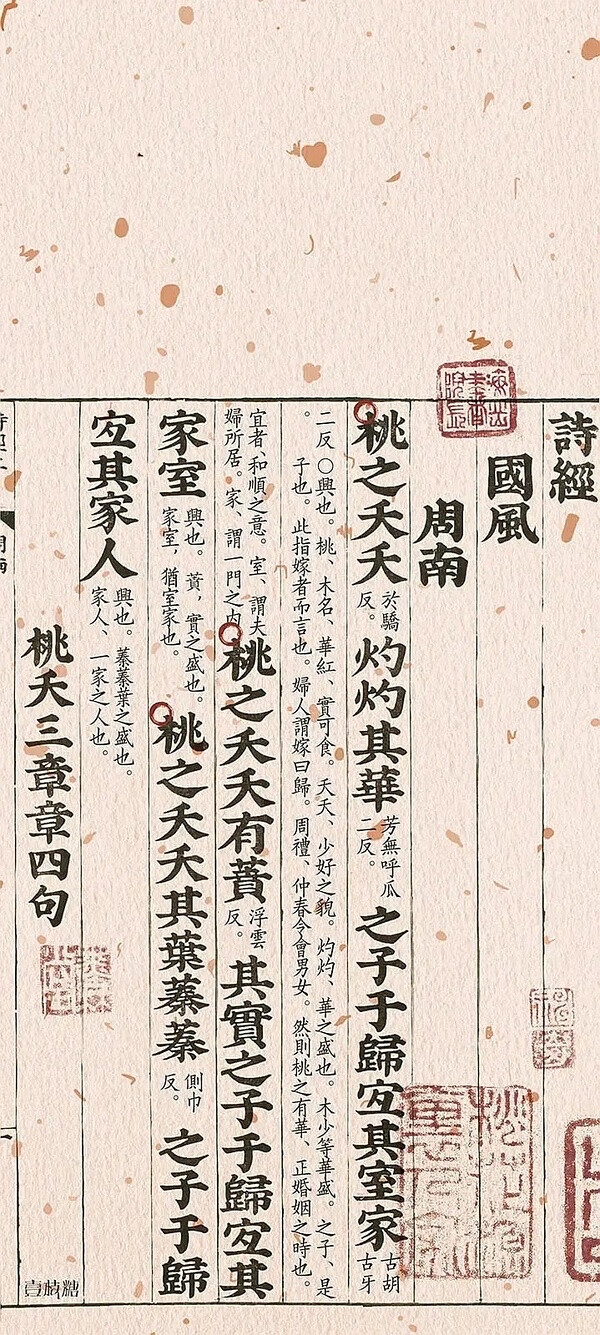 詩經
國風
周南
桃之夭夭於驕反。灼灼其華芳無呼瓜二反。之子于歸宐其室家古胡古牙
二反○興也。桃、木名、華紅、實可食。夭夭、少好之貌。灼灼、華之盛也。木少等華盛。之子、是
子也。此指嫁者而言也。婦人謂嫁曰歸。周禮、仲春令會男女。然則桃之有華、正婚姻之時也。
宜者、和順之意。室、謂夫婦所居。家、謂一門之内桃之夭夭有蕡浮雲反。其實之子于歸宐其
家室興也。蕡，實之盛也。家室，猶室家也。桃之夭夭其葉蓁蓁側巾反。之子于歸
宐其家人興也。蓁蓁葉之盛也。家人、一家之人也。
桃夭三章章四句